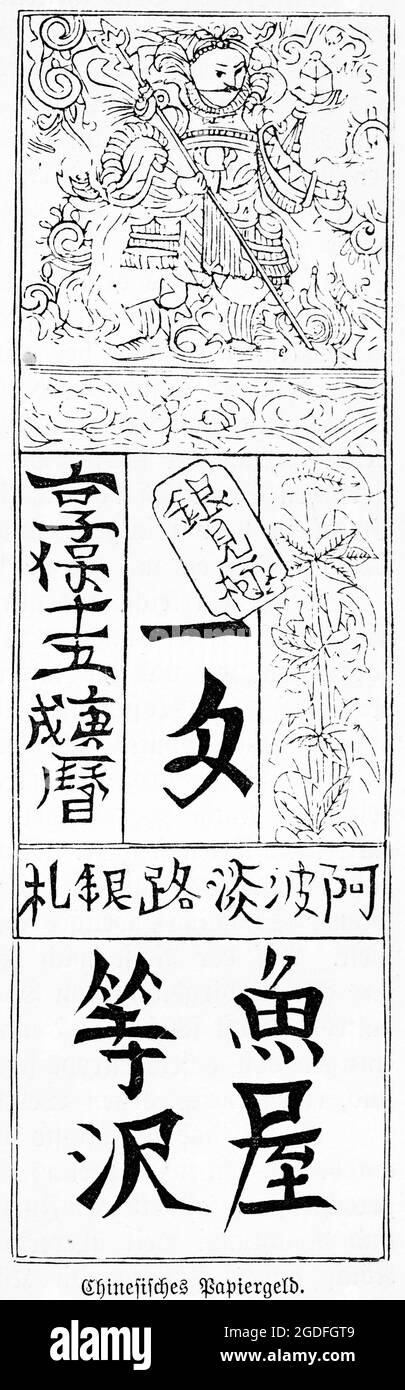 銀見極
一匁
享保十五庚戌暦
阿波淡路銀札
魚屋
沢
Chinesisches Papiergeld.
alamy
Image ID: 2GDFGT9
www.alamy.com